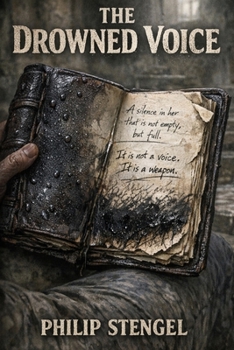 THE
DROWNED VOICE
A silence in her
that is not empty,
but full.
It is not a voice.
It is a weapon.
PHILIP STENGEL